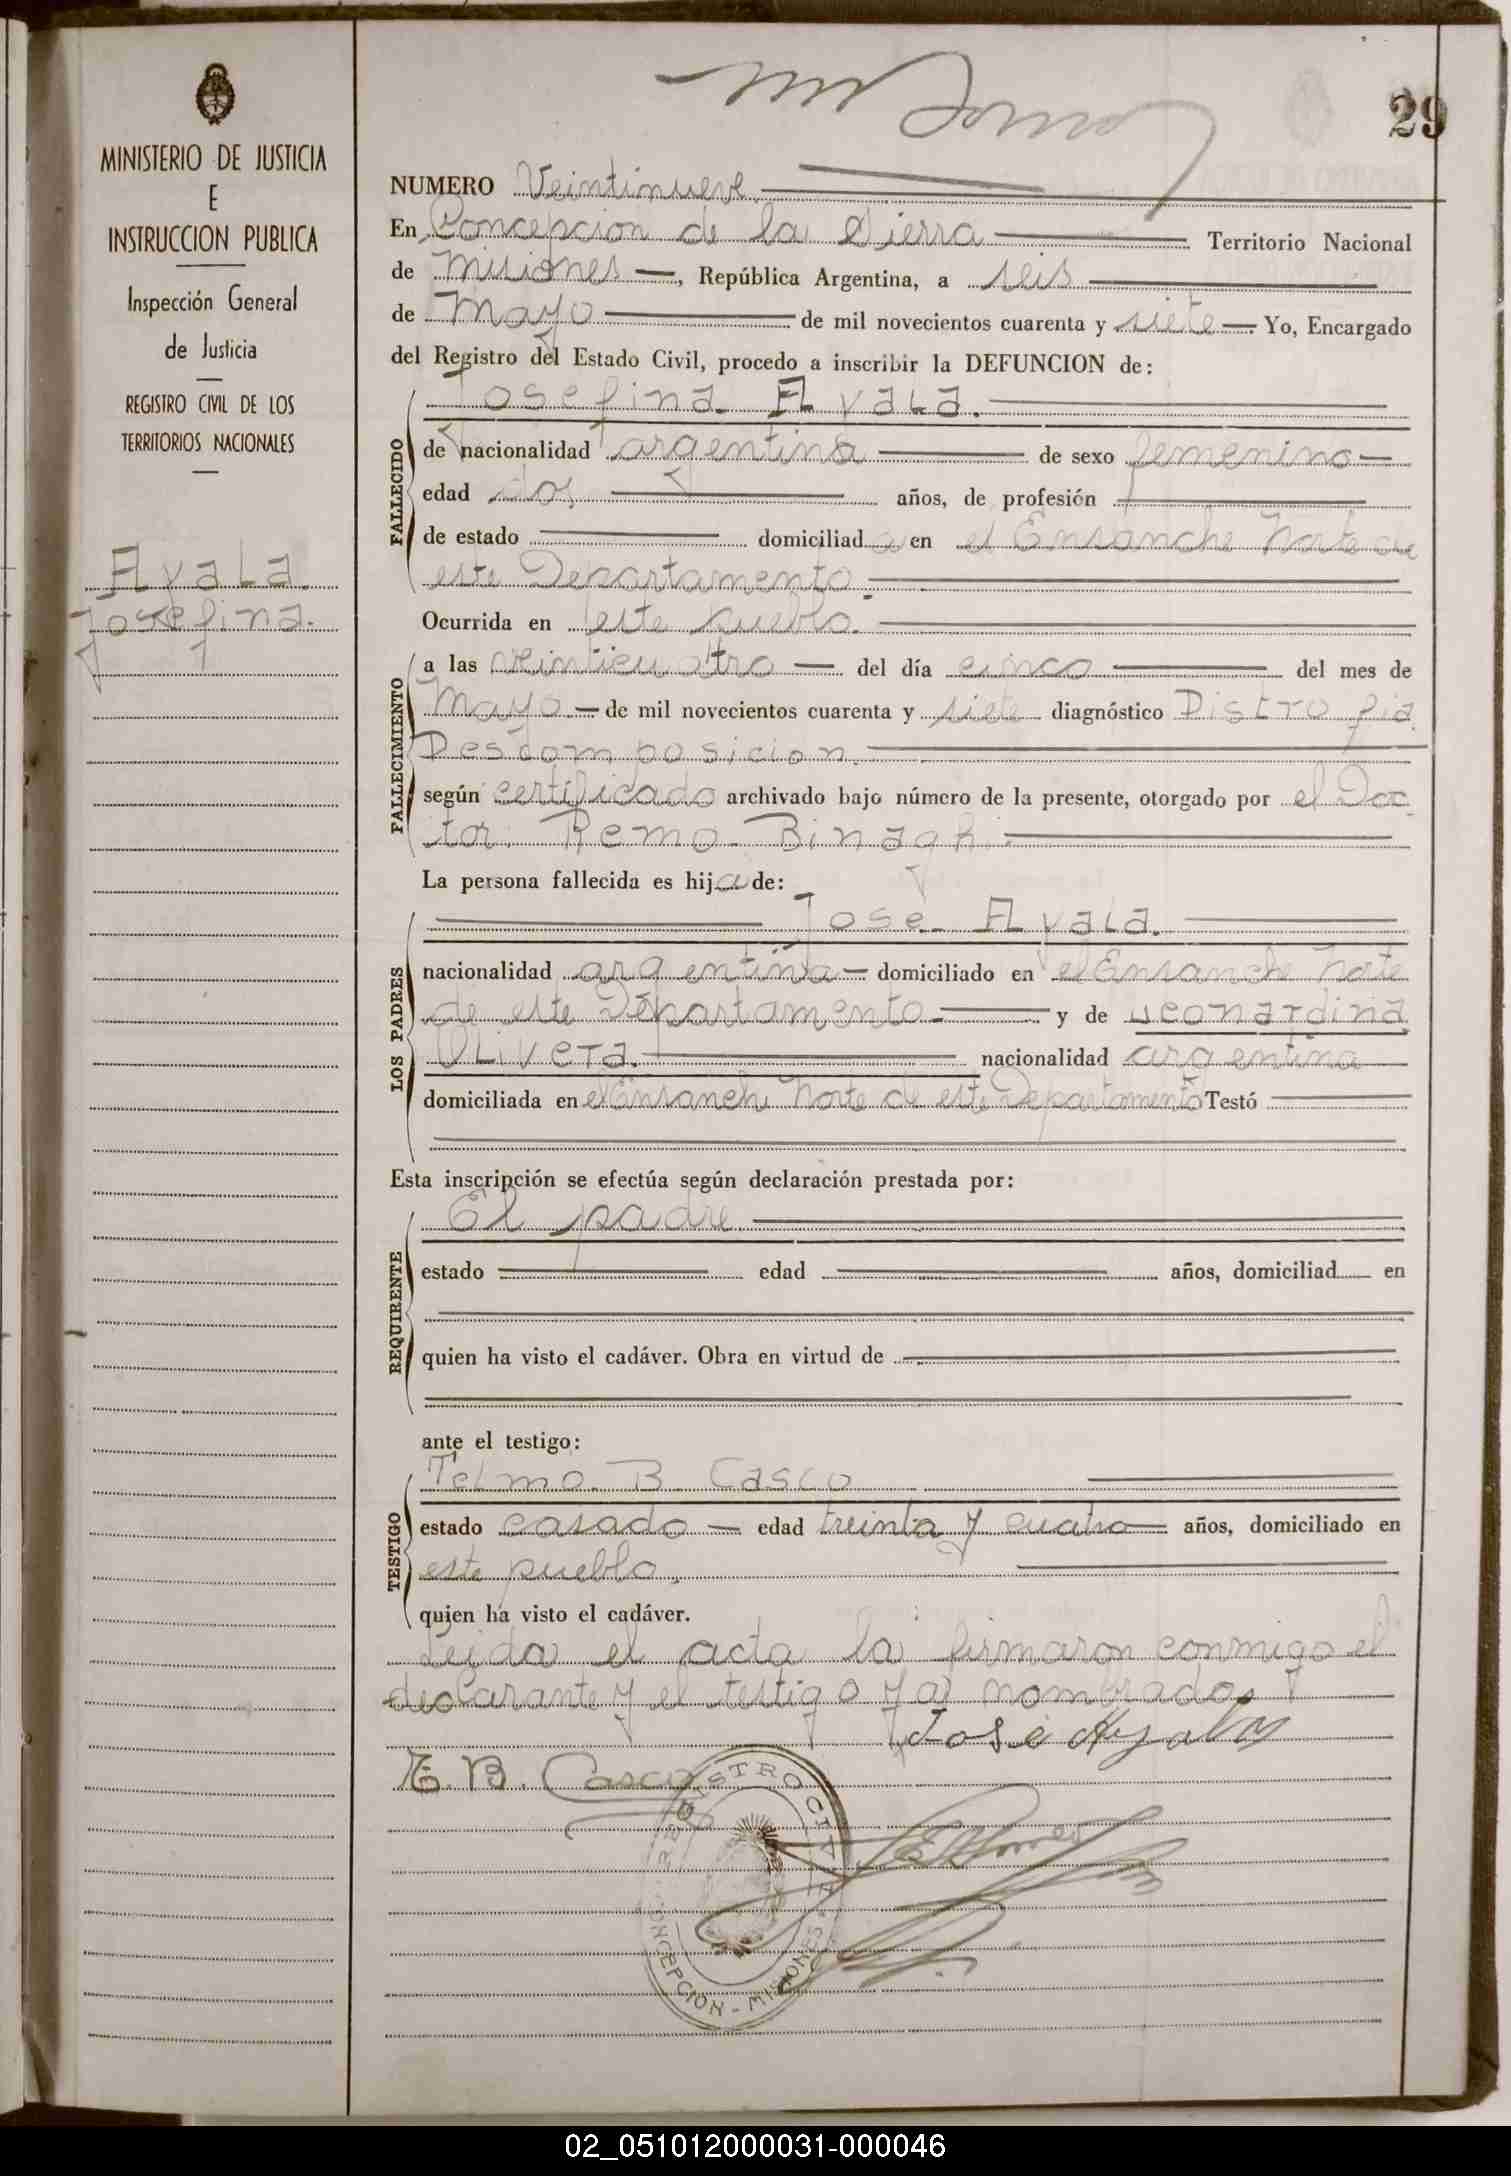 29
MINISTERIO DE JUSTICIA
E
INSTRUCCION PUBLICA
Inspección General
de Justicia
REGISTRO CIVIL DE LOS
TERRITORIOS NACIONALES
Ayala
Josefina.
NUMERO Veintinueve
En Concepcion de la Sierra Territorio Nacional
de Misiones, República Argentina, a seis
de Mayo de mil novecientos cuarenta y siete Yo, Encargado
del Registro del Estado Civil, procedo a inscribir la DEFUNCION de:
Josefina Ayala.
FALLECIDO
de nacionalidad argentina de sexo femenino
edad dos años, de profesión
de estado domiciliada en el Ensanche Norte de
este Departamento.
Ocurrida en este pueblo.
FALLECIMIENTO
a las veinticuatro del día cinco del mes de
Mayo. de mil novecientos cuarenta y siete diagnóstico Distrofia
Descomposicion.
según certificado archivado bajo número de la presente, otorgado por el Doc
tor. Remo Binaghi.
La persona fallecida es hija de:
José Ayala.
LOS PADRES
nacionalidad argentina domiciliado en el Ensanche Norte
de este Departamento y de Leonardina
Olivera. nacionalidad argentina
domiciliada en el Ensanche Norte de este Departamento Testó
Esta inscripción se efectúa según declaración prestada por:
El padre
REQUIRENTE
estado edad años, domiciliad en
quien ha visto el cadáver. Obra en virtud de
ante el testigo:
Telmo B. Casco
TESTIGO
estado casado edad treinta y cuatro años, domiciliado en
este pueblo.
quien ha visto el cadáver.
Leida el acta la firmaron conmigo el
declarante y el testigo ya nombrados
José Ayala
T. B. Casco
REGISTRO CIVIL
CONCEPCION - MISIONES
02_051012000031-000046